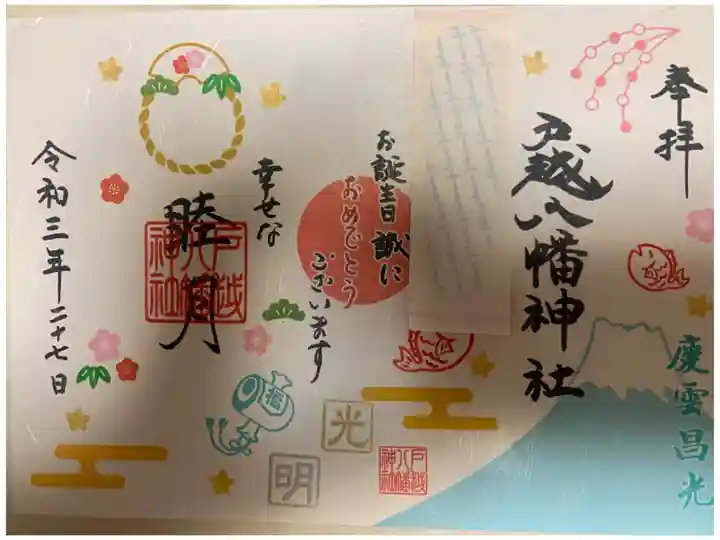 奉拝
慶雲昌光
戸越八幡神社
お誕生日誠に
おめでとう
ございます
幸せな
睦月
戸越八幡神社
令和三年二十七日
福
光
明
戸越八幡神社